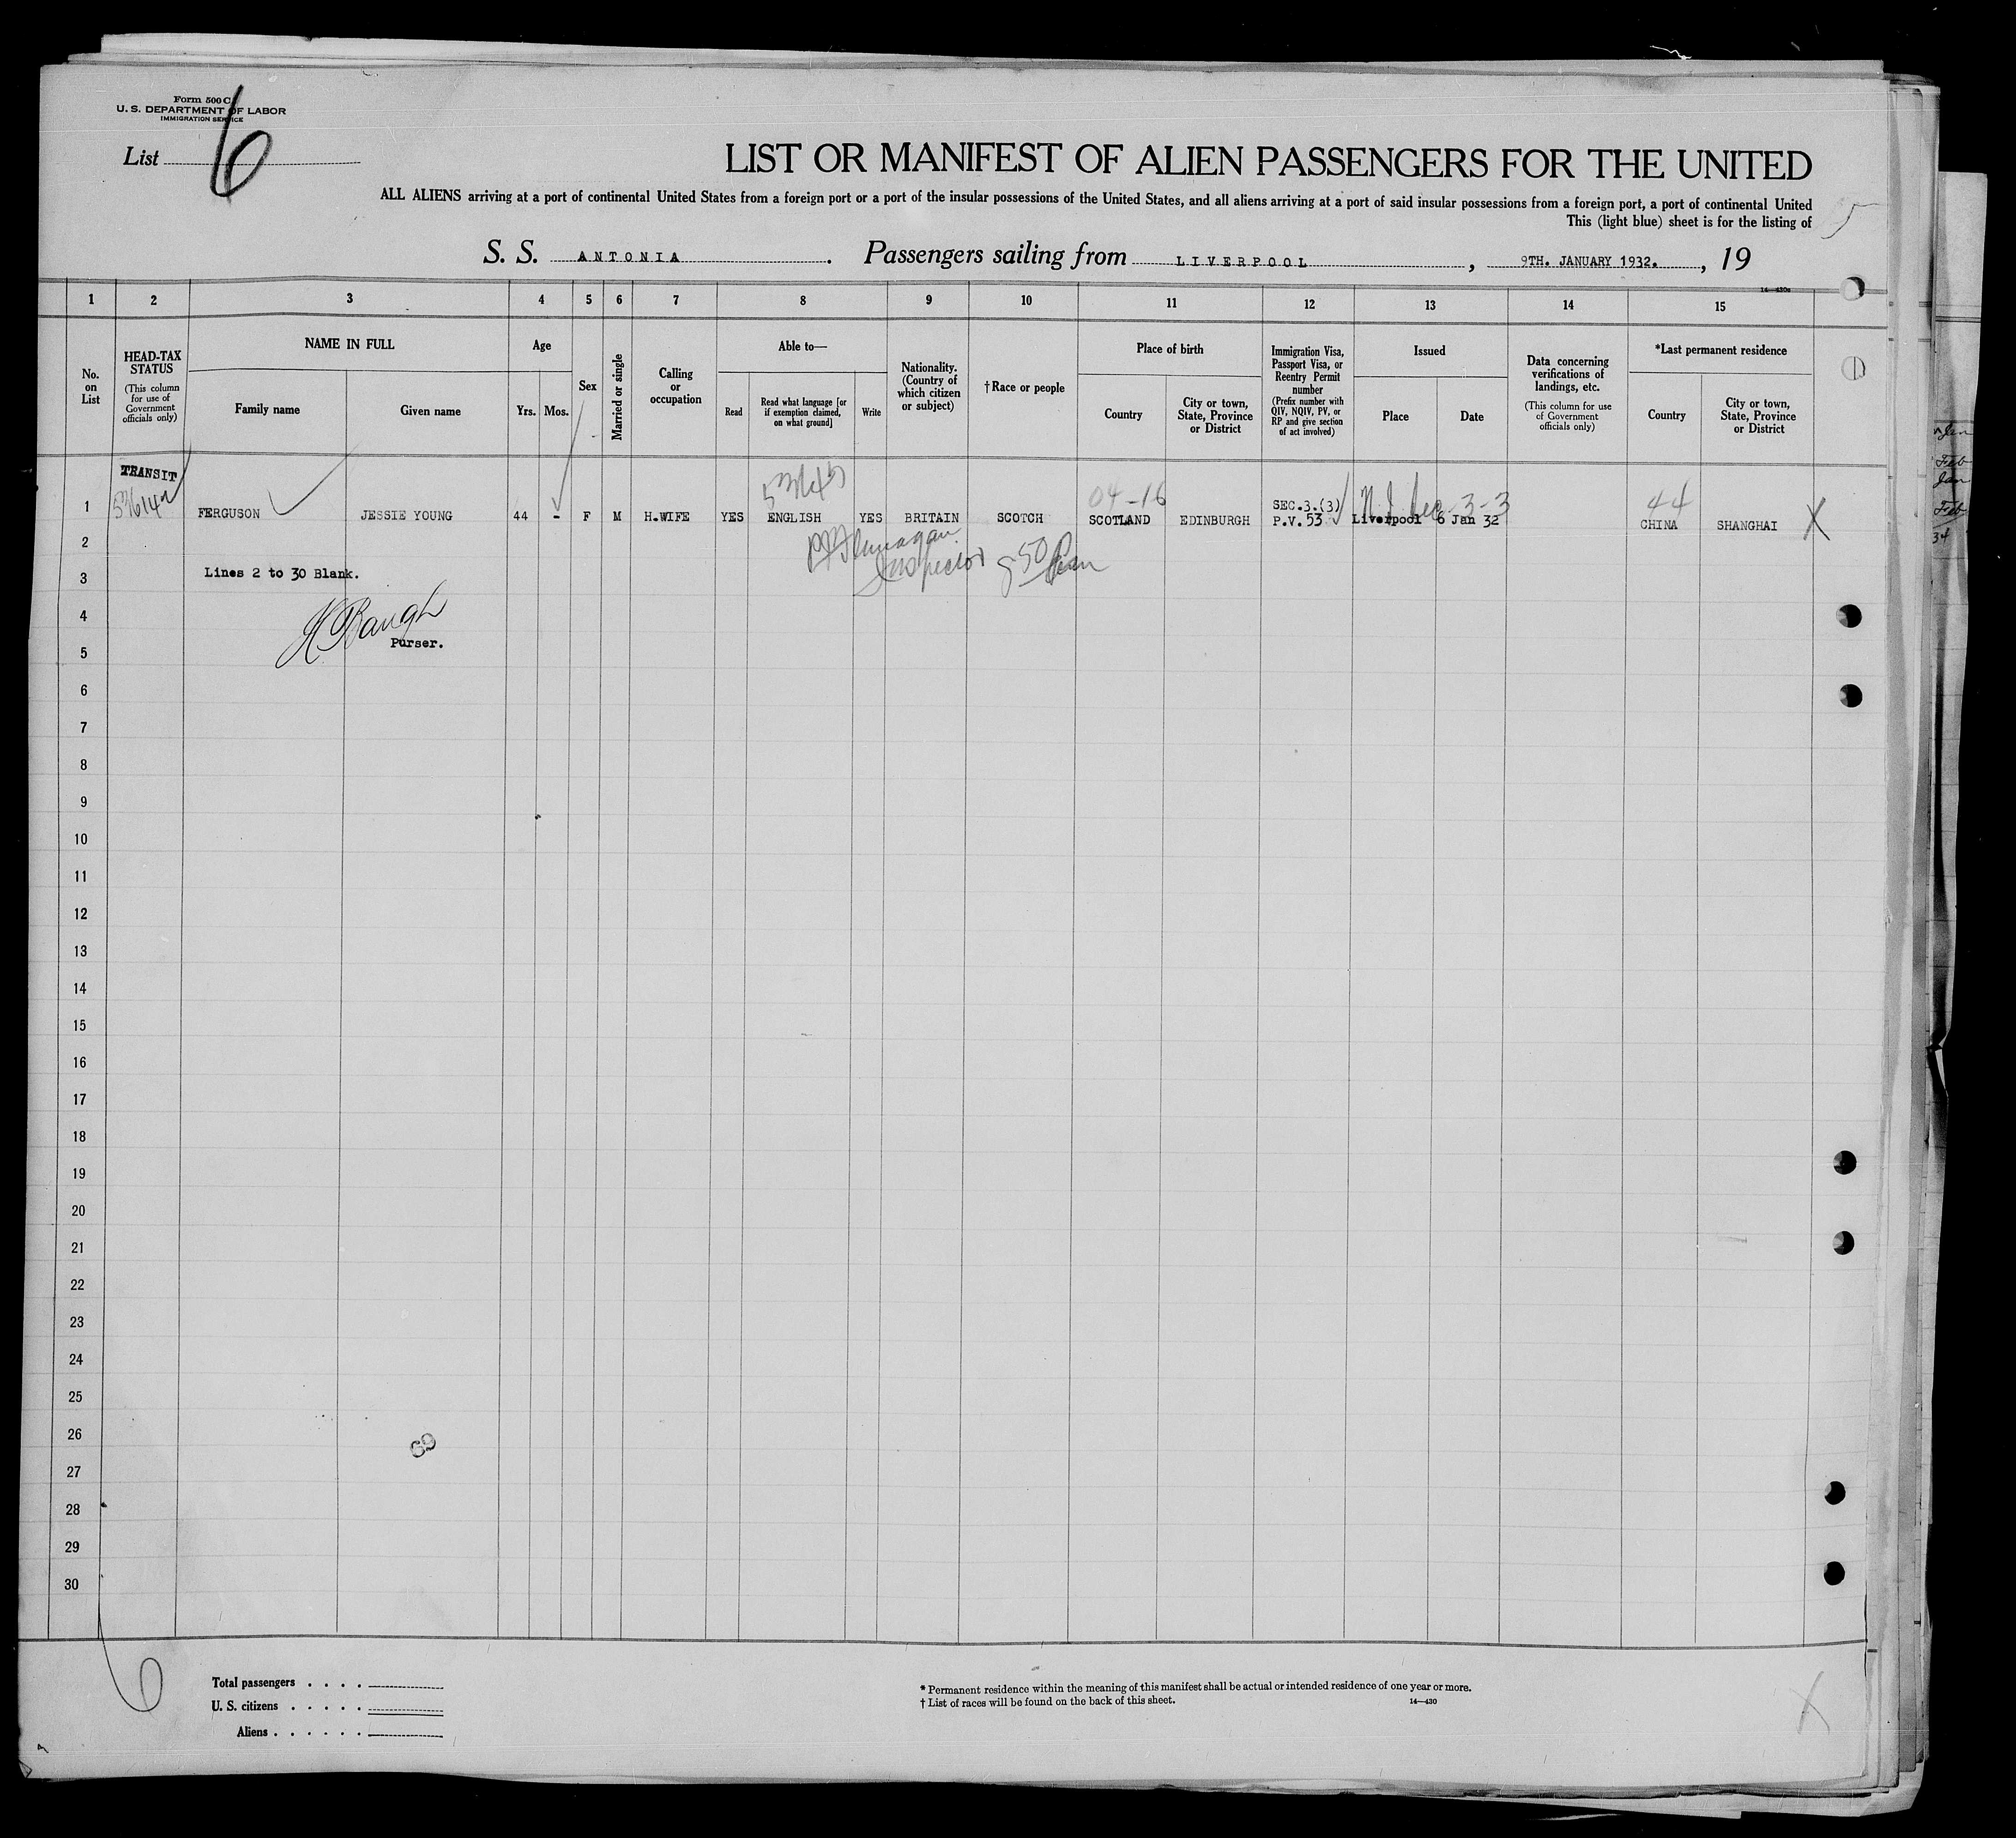 Form 500 C
U. S. DEPARTMENT OF LABOR
IMMIGRATION SERVICE
List 6
LIST OR MANIFEST OF ALIEN PASSENGERS FOR THE UNITED
ALL ALIENS arriving at a port of continental United States from a foreign port or a port of the insular possessions of the United States, and all aliens arriving at a port of said insular possessions from a foreign port, a port of continental United
This (light blue) sheet is for the listing of
5
S. S. ANTONIA. Passengers sailing from LIVERPOOL, 9TH. JANUARY 1932., 19
14—430a
1 2 3 4 5 6 7 8 9 10 11 12 13 14 15
No. on List
HEAD-TAX STATUS
(This column for use of Government officials only)
NAME IN FULL
Family name
Given name
Age
Yrs. Mos.
Sex
Married or single
Calling or occupation
Able to—
Read
Read what language [or if exemption claimed, on what ground]
Write
Nationality. (Country of which citizen or subject)
†Race or people
Place of birth
Country
City or town, State, Province or District
Immigration Visa, Passport Visa, or Reentry Permit number
(Prefix number with QIV, NQIV, PV, or RP and give section of act involved)
Issued
Place
Date
Data concerning verifications of landings, etc.
(This column for use of Government officials only)
*Last permanent residence
Country
City or town, State, Province or District
TRANSIT
04-16
44
SEC.3.(3)
1 FERGUSON JESSIE YOUNG 44 - F M H.WIFE YES ENGLISH YES BRITAIN SCOTCH SCOTLAND EDINBURGH P.V. 53 Liverpool 6 Jan 32 CHINA SHANGHAI X
2
Inspector
3 Lines 2 to 30 Blank.
4
H Baugh
Purser.
5
6
7
8
9
10
11
12
13
14
15
16
17
18
19
20
21
22
23
24
25
26
69
27
28
29
30
6
Total passengers . . . .
U. S. citizens . . . . .
Aliens . . . . . .
* Permanent residence within the meaning of this manifest shall be actual or intended residence of one year or more.
† List of races will be found on the back of this sheet.
14—430
X